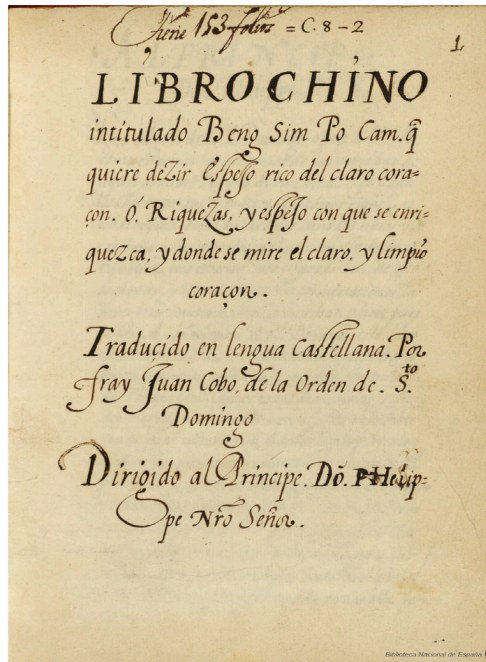 Tiene 153 folios = C. 8 - 2
1
LIBRO CHINO
intitulado Beng Sim Po Cam. q̃
quiere deZir Espejo rico del claro cora=
çon. O, RiqueZas, y espejo con que se enri=
queZca, y donde se mire el claro, y limpio
coraçon.
Traducido en lengua Castellana. Por
fray Juan Cobo, de la Orden de. S.to
Domingo
Dirigido al Principe. Dõ. PHelip=
pe Nr̃o Señor.
Biblioteca Nacional de España